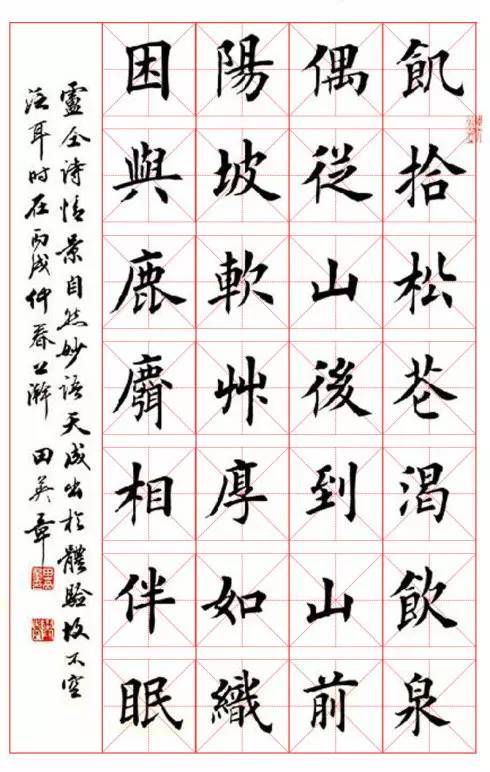 飢拾松花渴飲泉
偶從山後到山前
陽坡軟艸厚如織
困與鹿麛相伴眠
盧仝诗情景自然妙語天成出於體驗故不空
泛耳时在丙戌仲春上澣 田英章